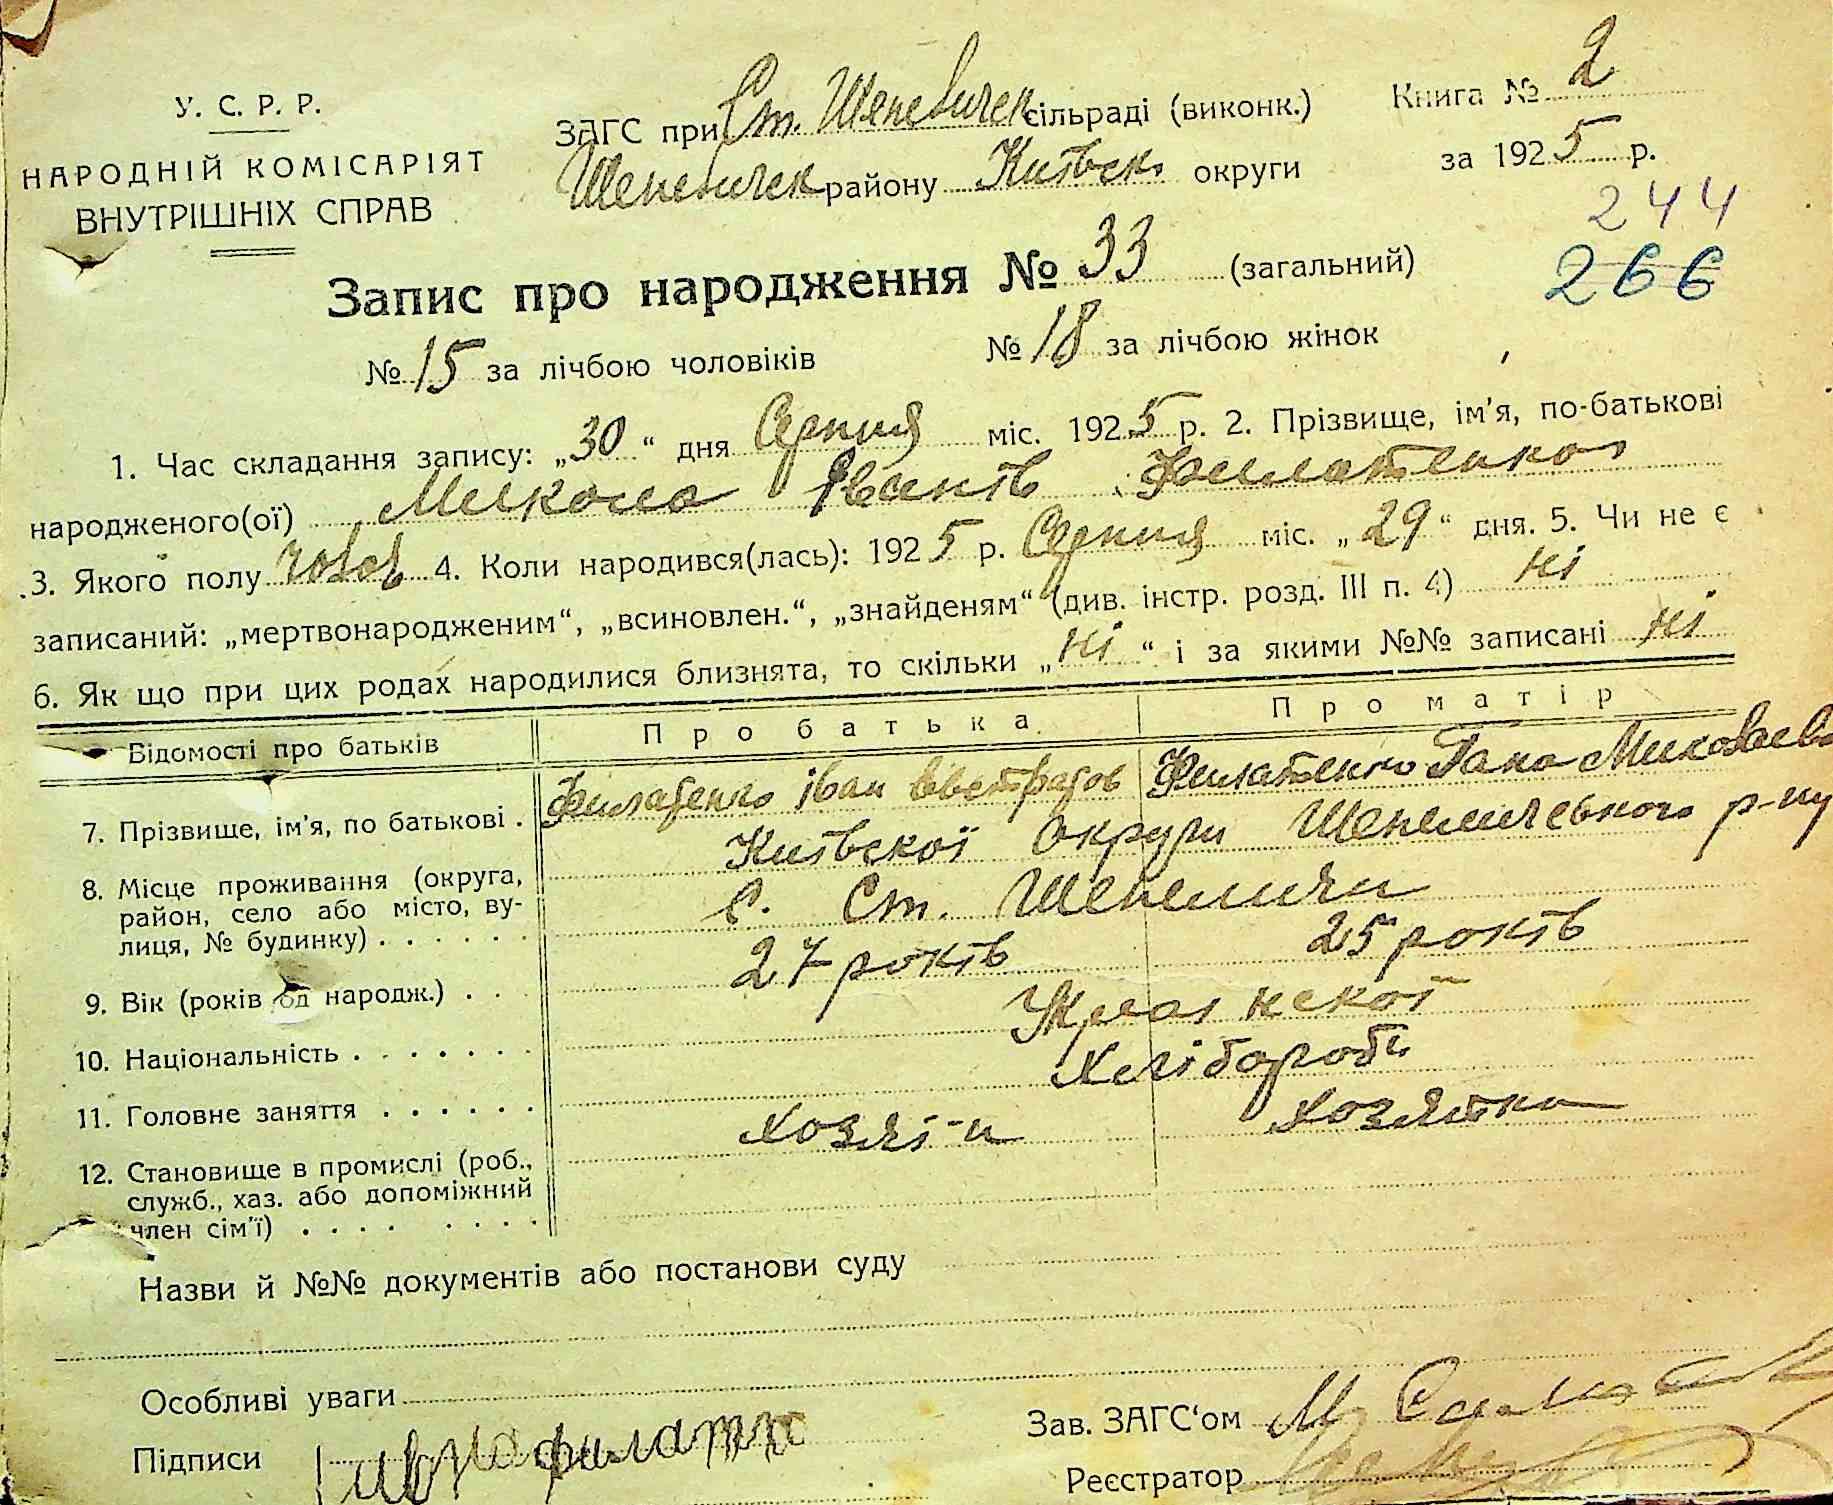 У. С. Р. Р.
НАРОДНІЙ КОМІСАРІЯТ
ВНУТРІШНІХ СПРАВ
ЗАГС при Ст. Шепеличск сільраді (виконк.)
Шепеличск району Київськ округи
Книга № 2
за 1925 р.
244
266
Запис про народження № 33 (загальний)
№ 15 за лічбою чоловіків № 18 за лічбою жінок
1. Час складання запису: „30“ дня Серпня міс. 1925 р. 2. Прізвище, ім'я, по-батькові
народженого(ої) Микола Іванів Филатенко
3. Якого полу чолов 4. Коли народився(лась): 1925 р. Серпня міс. „29“ дня. 5. Чи не є
записаний: „мертвонародженим“, „всиновлен.“, „знайденям“ (див. інстр. розд. III п. 4) ні
6. Як що при цих родах народилися близнята, то скільки „ні“ і за якими №№ записані ні
Відомості про батьків Про батька Про матір
7. Прізвище, ім'я, по батькові . Филатенко Іван Євстратов Филатенко Гана Миколаєва
8. Місце проживання (округа, Київскої Округи Шепеличевького р-ну
район, село або місто, ву- с. Ст. Шепеличи
лиця, № будинку) . . . . . .
9. Вік (років од народж.) . . 27 років 25 років
10. Національність . . . . . . . Украінскої
11. Головне заняття . . . . . . Хлібороби
12. Становище в промислі (роб., хозяі-н хозяйка
служб., хаз. або допоміжний
член сім'ї) . . . . . . . .
Назви й №№ документів або постанови суду
Особливі уваги
Підписи
Зав. ЗАГС'ом
Реєстратор